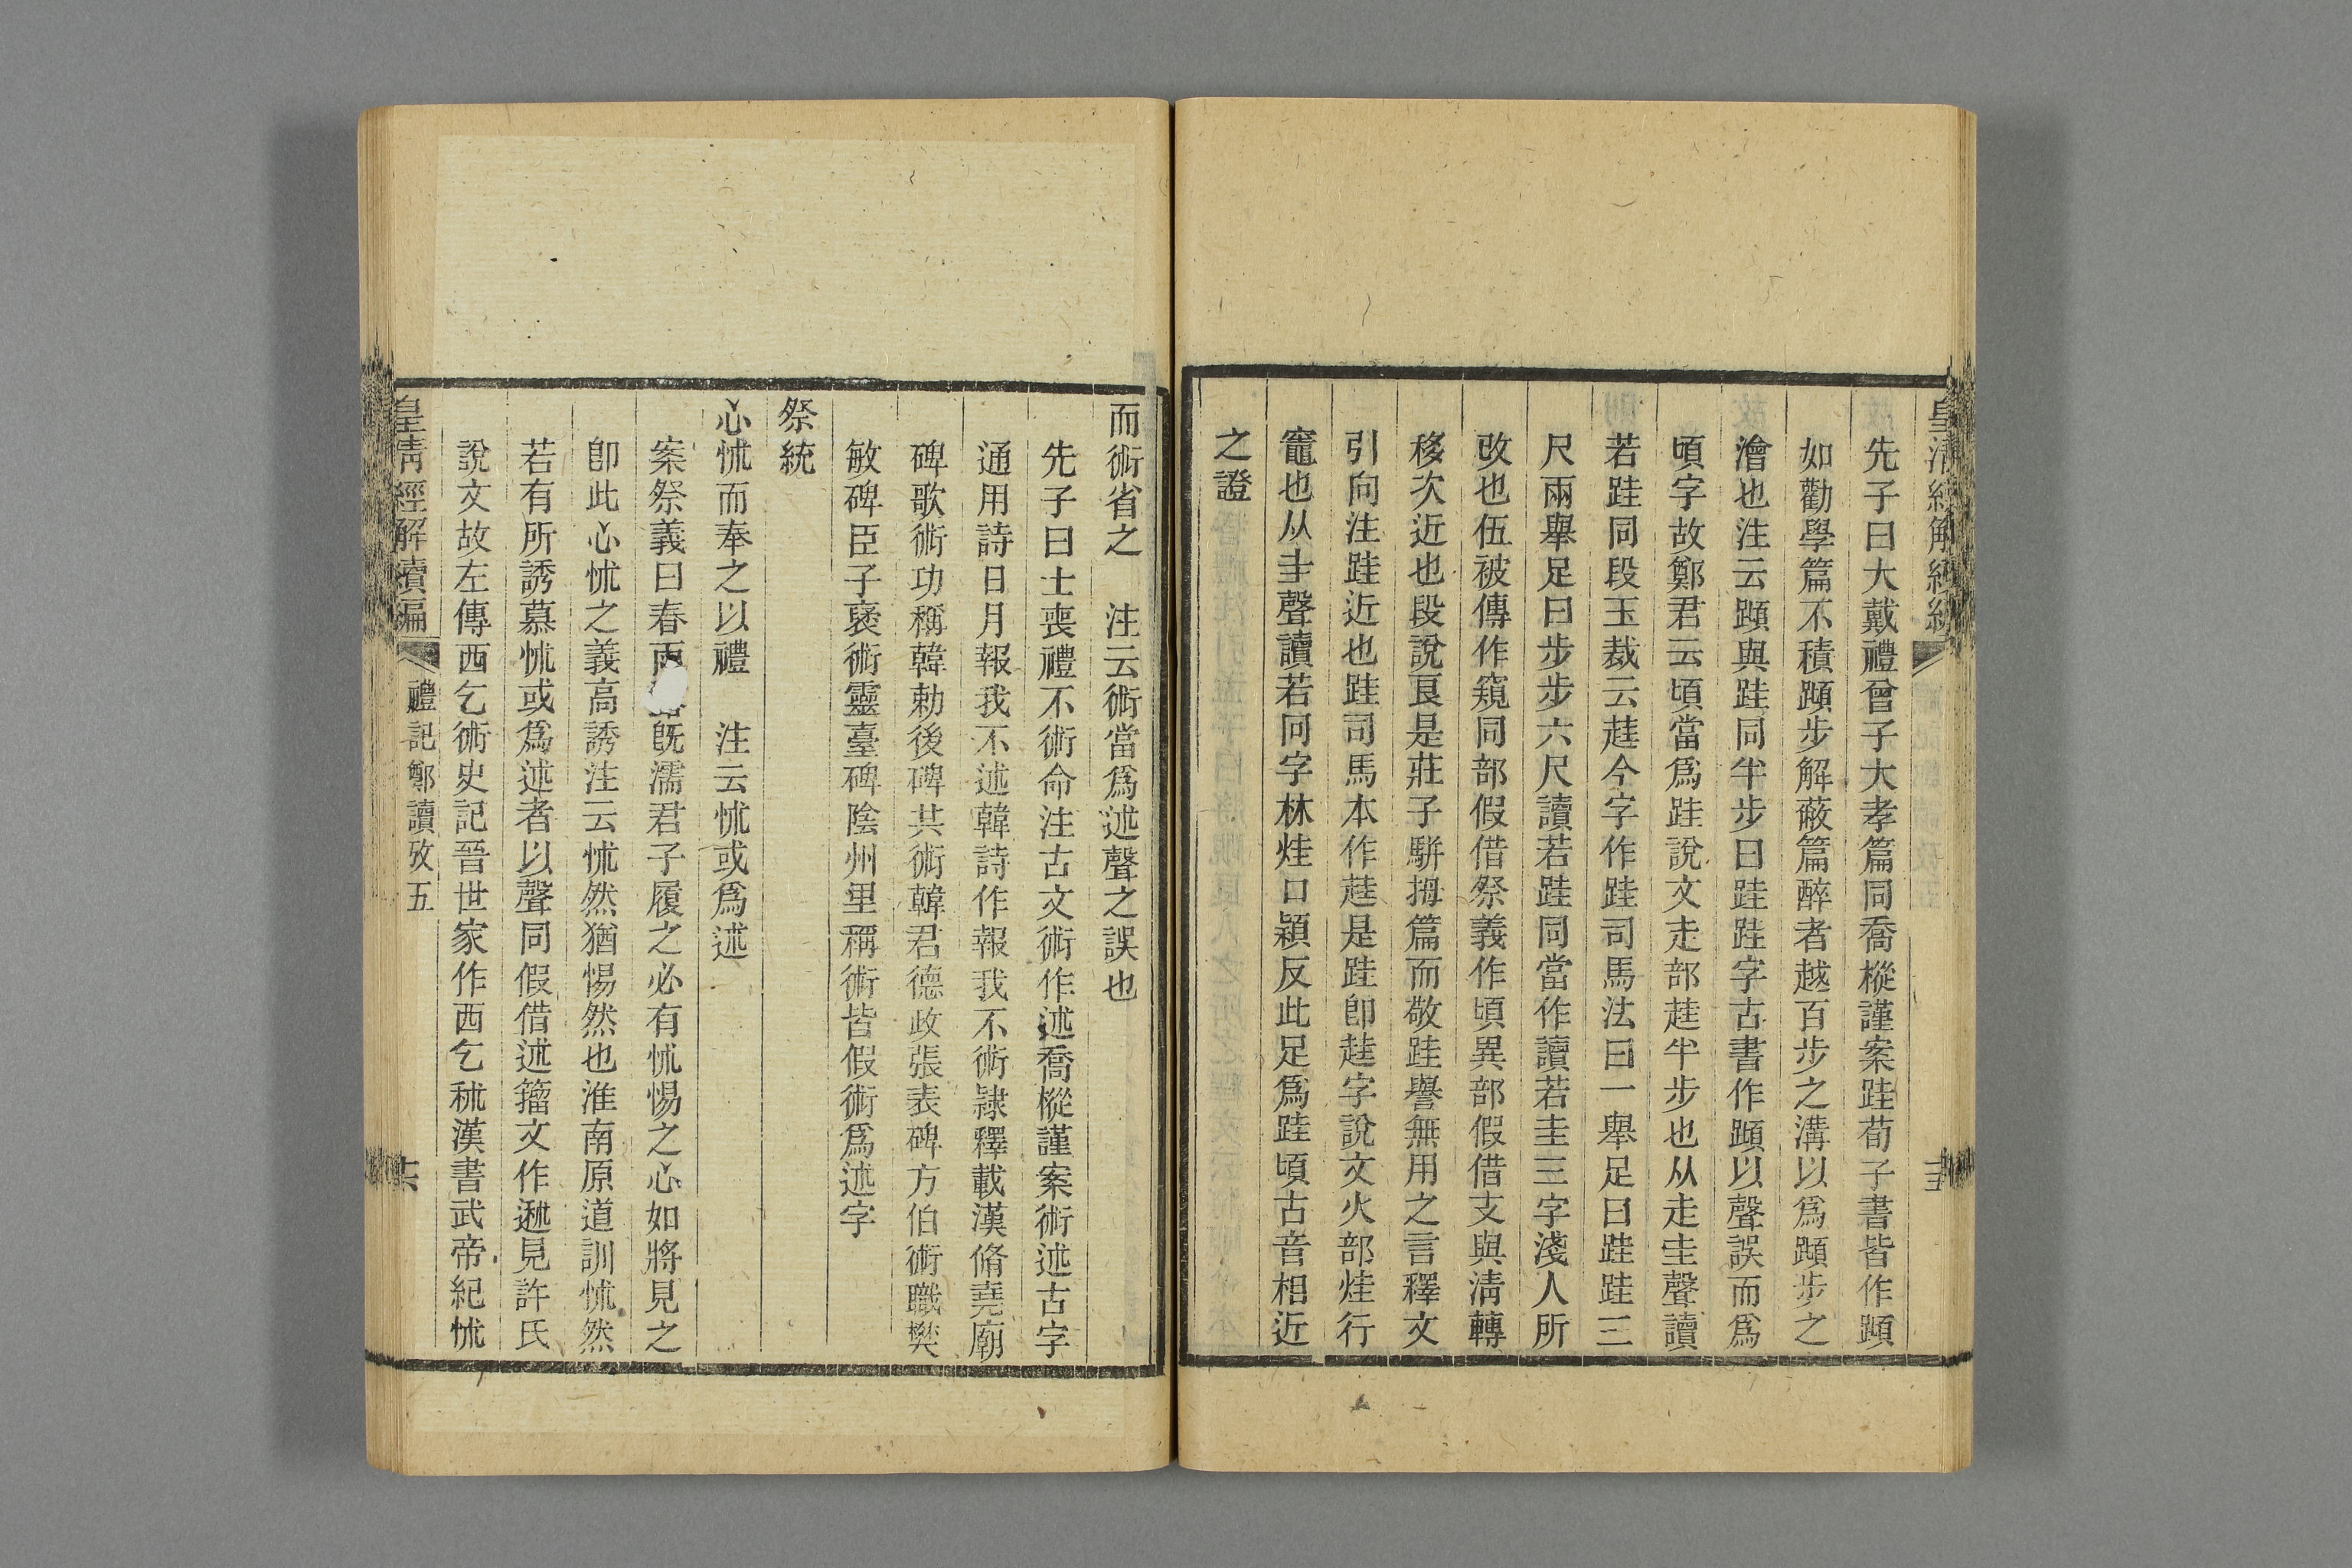 先子曰大戴禮曾子大孝篇同喬樅謹案跬荀子書皆作蹞
如勸學篇不積蹞步解蔽篇醉者越百步之溝以爲蹞步之
澮也注云蹞與跬同半步曰跬跬字古書作蹞以聲誤而爲
頃字故鄭君云頃當爲跬說文走部趌半步也从走圭聲讀
若跬同段玉裁云趌今字作跬司馬法曰一舉足曰跬跬三
尺兩舉足曰步步六尺讀若跬同當作讀若圭三字淺人所
改也伍被傳作窺同部假借祭義作頃異部假借支與淸轉
移次近也段說良是莊子駢拇篇而敬跬譽無用之言釋文
引向注跬近也跬司馬本作趌是跬卽趌字說文火部烓行
竈也从圭聲讀若冋字林烓口穎反此足爲跬頃古音相近
之證
而術省之 注云術當爲述聲之誤也
先子曰士喪禮不術命注古文術作述喬樅謹案術述古字
通用詩日月報我不述韓詩作報我不術隷釋載漢脩堯廟
碑歌術功稱韓勅後碑共術韓君德政張表碑方伯術職樊
敏碑臣子襃術靈臺碑陰州里稱術皆假術爲述字
祭統
心怵而奉之以禮 注云怵或爲述
案祭義曰春雨旣濡君子履之必有怵惕之心如將見之
卽此心怵之義高誘注云怵然猶惕然也淮南原道訓怵然
若有所誘慕怵或爲述者以聲同假借述籀文作遬見許氏
說文故左傳西乞術史記晉世家作西乞秫漢書武帝紀怵
皇淸經解續編 禮記鄭讀攷五